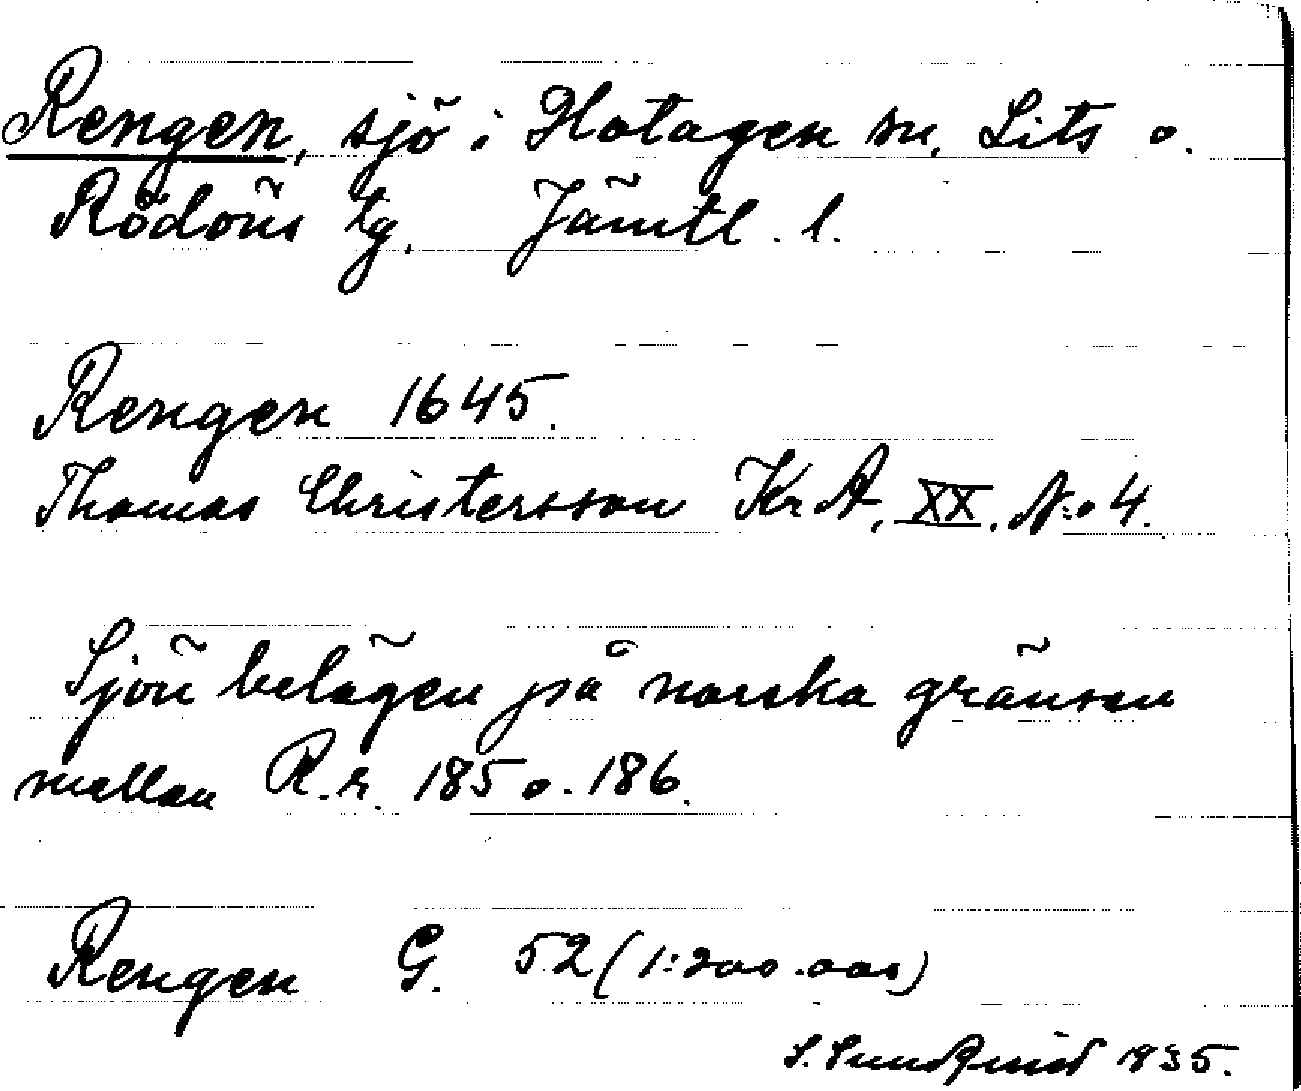 Rengen, sjö i Hotagen sn, Lits o.
Rödöns tg, Jämtl. l.
Rengen 1645.
Thomas Christersson Kr A, XX, N:o 4.
Sjön belägen på norska gränsen
mellan R.r. 185 o. 186.
Rengen G. 52 (1:200.000)
S. Sundquist 1935.